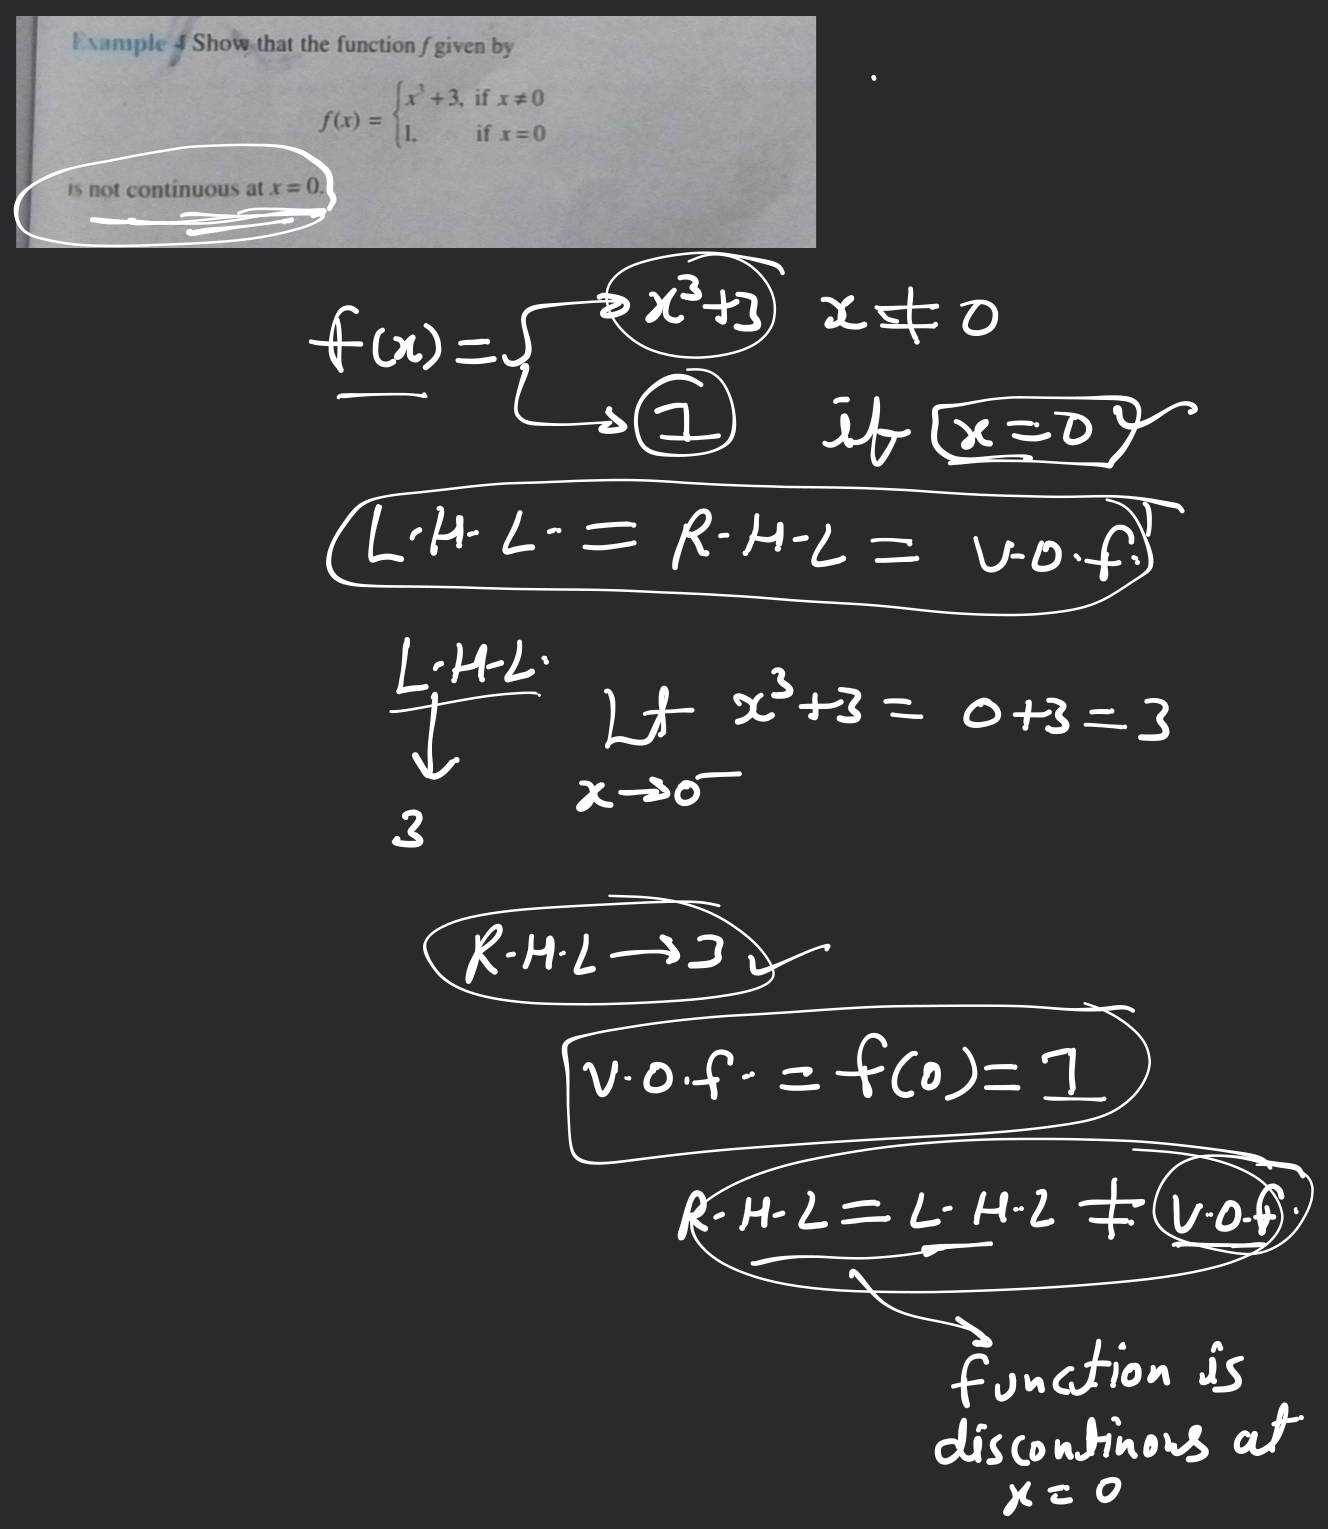 Example 4 Show that the function f given by
f(x) = { x³ + 3, if x ≠ 0
1, if x = 0
is not continuous at x = 0.
f(x) = { x³+3 x ≠ 0
1 if x=0
L.H.L. = R.H.L = V.O.f.
L.H.L.
Lt x³+3 = 0+3 = 3
x→0⁻
3
R.H.L → 3
V.O.f. = f(0) = 1
R.H.L = L.H.L ≠ V.O.f.
function is
discontinous at
x = 0